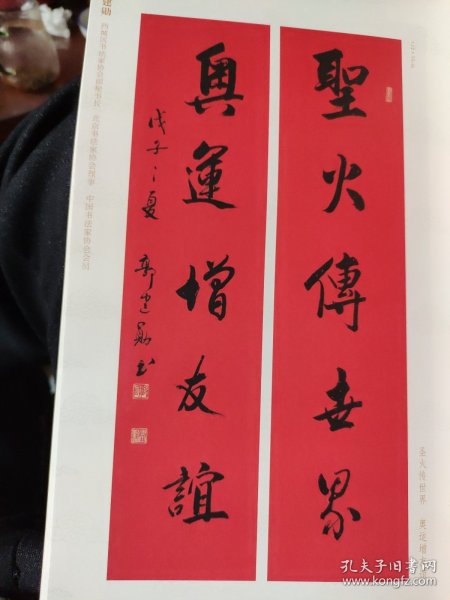 聖火傳世界
奧運增友谊
戊子之夏 郭建勛书
建勋 西城区书法家协会副秘书长 北京书法家协会理事 中国书法家协会会员
圣火传世界 奥运增友
孔夫子旧书网
www.kongfz.com